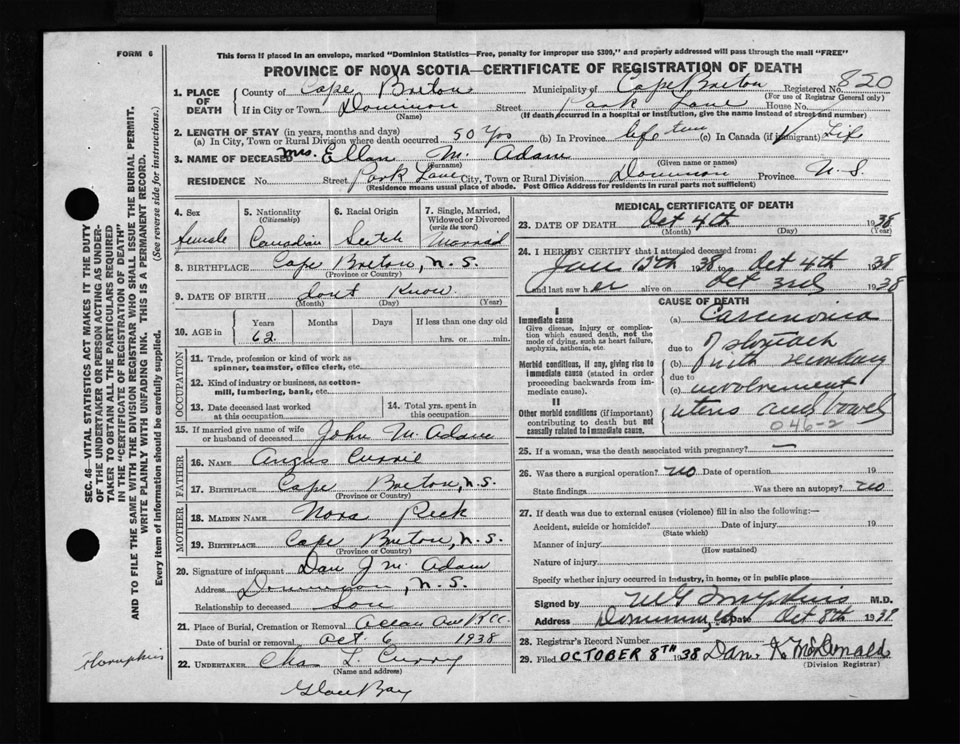 FORM 6
This form if placed in an envelope, marked "Dominion Statistics—Free, penalty for improper use $300," and properly addressed will pass through the mail "FREE"
PROVINCE OF NOVA SCOTIA—CERTIFICATE OF REGISTRATION OF DEATH
1. PLACE OF DEATH
County of Cape Breton Municipality of Cape Breton Registered No. 820
(For use of Registrar General only)
If in City or Town Dominion Street Park Lane House No.
(Name) (If death occurred in a hospital or institution, give the name instead of street and number)
2. LENGTH OF STAY (in years, months and days)
(a) In City, Town or Rural Division where death occurred 50 Yrs (b) In Province life time (c) In Canada (if immigrant) Life
3. NAME OF DECEASED Mrs. Ellen Mc Adam
(Surname) (Given name or names)
RESIDENCE No. Street Park Lane City, Town or Rural Division Dominion Province N.S.
(Residence means usual place of abode. Post Office Address for residents in rural parts not sufficient)
4. Sex
female
5. Nationality
(Citizenship)
Canadian
6. Racial Origin
Scotch
7. Single, Married, Widowed or Divorced
(write the word)
Married
8. BIRTHPLACE Cape Breton, N.S.
(Province or Country)
9. DATE OF BIRTH dont Know
(Month) (Day) (Year)
10. AGE in
Years Months Days If less than one day old
62 hrs. or min.
OCCUPATION
11. Trade, profession or kind of work as spinner, teamster, office clerk, etc.
12. Kind of industry or business, as cotton-mill, lumbering, bank, etc.
13. Date deceased last worked at this occupation
14. Total yrs. spent in this occupation
15. If married give name of wife or husband of deceased John McAdam
FATHER
16. NAME Angus Currie
17. BIRTHPLACE Cape Breton, N.S.
(Province or Country)
MOTHER
18. MAIDEN NAME Nora
19. BIRTHPLACE Cape Breton, N.S.
(Province or Country)
20. Signature of informant Dan J McAdam
Address Dominion, N.S.
Relationship to deceased Son
21. Place of Burial, Cremation or Removal
Date of burial or removal Oct. 6 1938
22. UNDERTAKER Chas L. Curry
(Name and address)
Glace Bay
MEDICAL CERTIFICATE OF DEATH
23. DATE OF DEATH Oct 4th 1938
(Month) (Day) (Year)
24. I HEREBY CERTIFY that I attended deceased from:
Jan 1938 to Oct 4th 1938
and last saw her alive on Oct 3rd 1938
CAUSE OF DEATH
I
Immediate cause
Give disease, injury or complication which caused death, not the mode of dying, such as heart failure, asphyxia, asthenia, etc.
Morbid conditions, if any, giving rise to immediate cause (stated in order proceeding backwards from immediate cause).
II
Other morbid conditions (if important) contributing to death but not causally related to immediate cause.
(a) Carcinoma
due to of stomach
(b) with secondary
due to
(c) involvement
uterus and bowel
046-2
25. If a woman, was the death associated with pregnancy? —
26. Was there a surgical operation? no Date of operation 19
State findings Was there an autopsy? no
27. If death was due to external causes (violence) fill in also the following:—
Accident, suicide or homicide? Date of injury 19
(State which)
Manner of injury
(How sustained)
Nature of injury
Specify whether injury occurred in industry, in home, or in public place
Signed by M G Tompkins M.D.
Address Dominion Date Oct 8th 1938
28. Registrar's Record Number
29. Filed OCTOBER 8TH 1938 Dan. K. McDonald
(Division Registrar)
SEC. 46—VITAL STATISTICS ACT MAKES IT THE DUTY
OF THE UNDERTAKER OR PERSON ACTING AS UNDER-
TAKER TO OBTAIN ALL THE PARTICULARS REQUIRED
IN THE "CERTIFICATE OF REGISTRATION OF DEATH"
AND TO FILE THE SAME WITH THE DIVISION REGISTRAR WHO SHALL ISSUE THE BURIAL PERMIT.
WRITE PLAINLY WITH UNFADING INK. THIS IS A PERMANENT RECORD.
Every item of information should be carefully supplied. (See reverse side for instructions.)